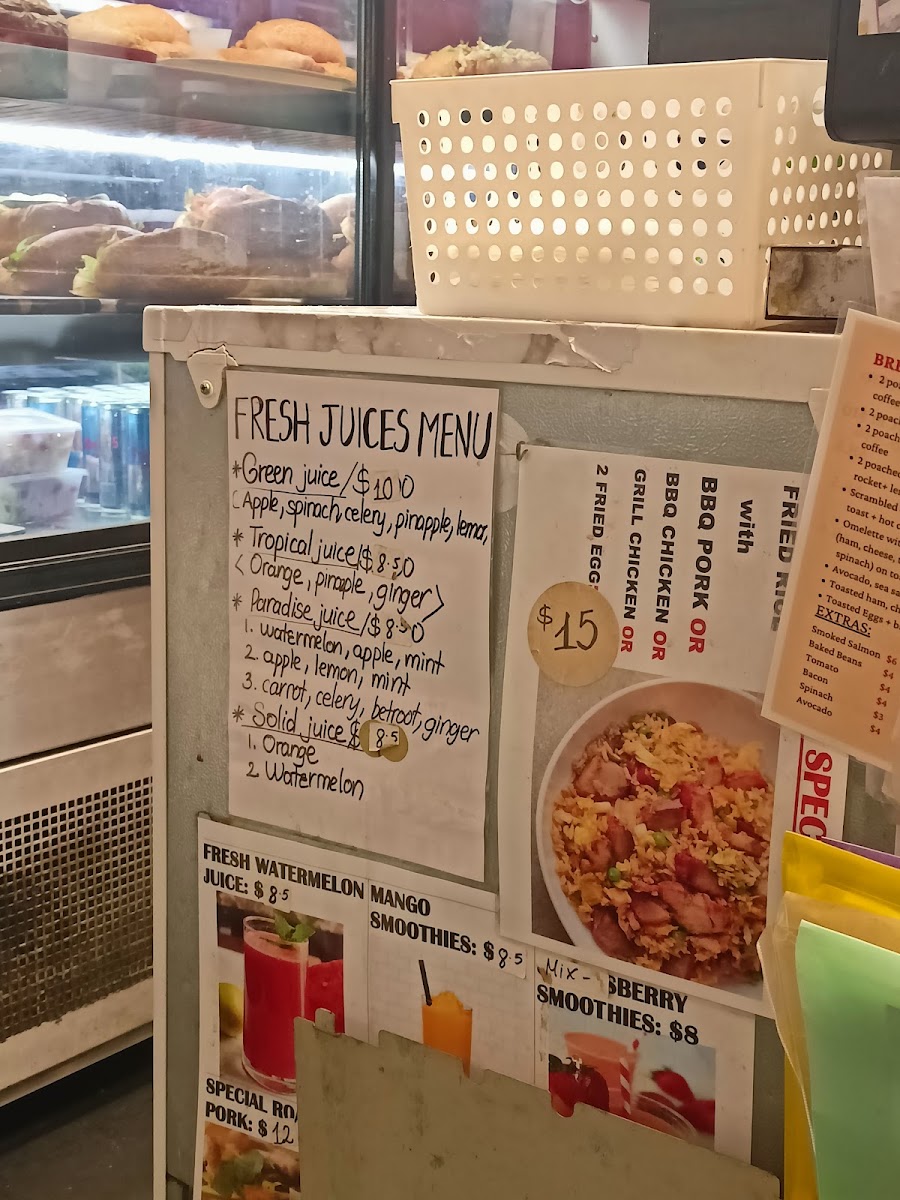 FRESH JUICES MENU
*Green juice/$10 0
(Apple, spinach, celery, pinapple, lemon,
* Tropical juice/$8.50
< Orange, pinapple, ginger>
* Paradise juice/$8.50
1. watermelon, apple, mint
2. apple, lemon, mint
3. carrot, celery, betroot, ginger
* Solid juice $ 8.5
1. Orange
2 Watermelon
FRIED RICE
with
BBQ PORK OR
BBQ CHICKEN OR
GRILL CHICKEN OR
2 FRIED EGGS
$15
• 2 poached
coffee
• 2 poached
• 2 poached
coffee
• 2 poached
rocket+
• Scrambled
toast + hot
• Omelette
(ham, cheese,
spinach) on
• Avocado, sea
• Toasted ham,
• Toasted Eggs +
EXTRAS:
Smoked Salmon $6
Baked Beans $4
Tomato $4
Bacon $4
Spinach $3
Avocado $4
FRESH WATERMELON
JUICE: $8.5
MANGO
SMOOTHIES: $8.5
Mix- SBERRY
SMOOTHIES: $8
SPECIAL
PORK: $12